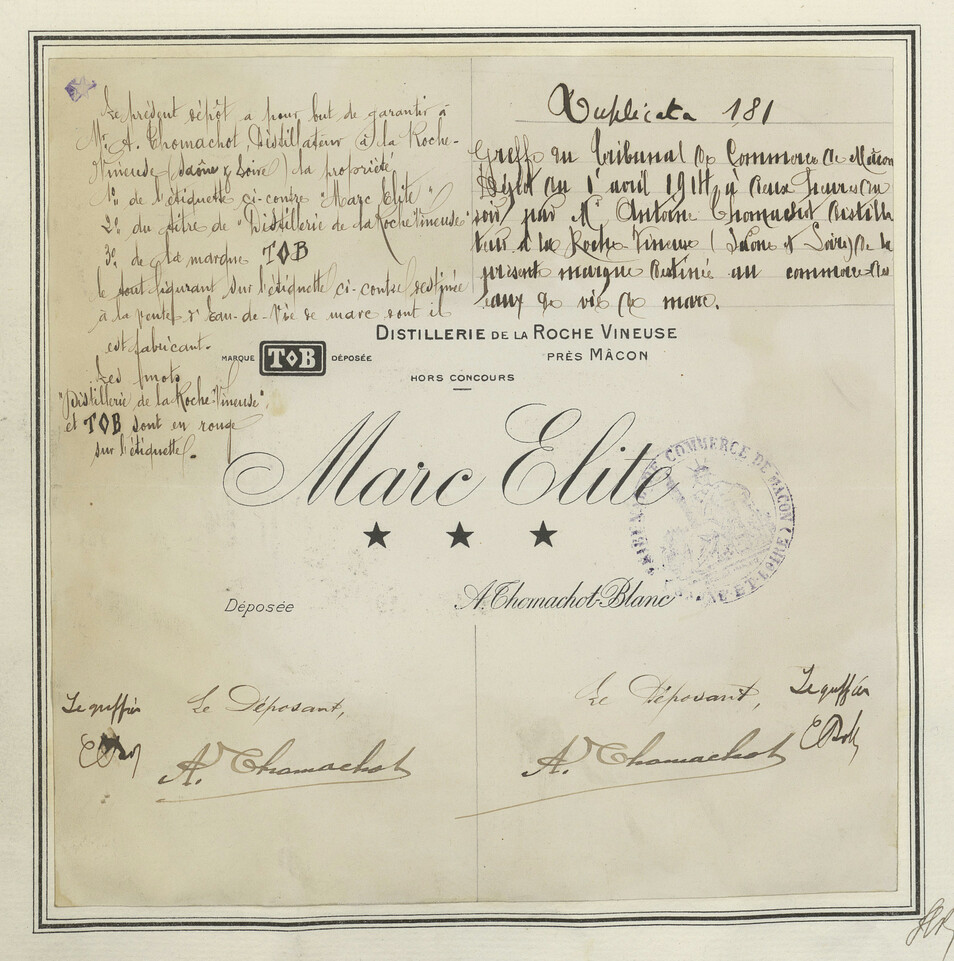 Le présent dépôt a pour but de garantir à
Mr. A. Thomachot, Distillateur à la Roche-
Vineuse (Saône & Loire) la propriété
1° de l'étiquette ci-contre "Marc Elite"
2° du titre de "Distillerie de la Roche Vineuse"
3° de la marque TOB
le tout figurant sur l'étiquette ci-contre destinée
à la vente d'eau-de-Vie de marc dont il
est fabricant.
Les mots
"Distillerie de la Roche-Vineuse",
et TOB sont en rouge
sur l'étiquette.
Duplicata 181
Greffe du Tribunal de Commerce de Mâcon
Dépôt du 1er avril 1914, à deux heures du
soir, par Mr Antoine Thomachot distilla
teur à la Roche-Vineuse (Saône et Loire) de la
présent marque destinée au commerce des
eaux de vie de marc.
DISTILLERIE DE LA ROCHE VINEUSE
PRÈS MÂCON
MARQUE TOB DÉPOSÉE
HORS CONCOURS
Marc Elite
TRIBUNAL DE COMMERCE DE MACON (SAÔNE-ET-LOIRE)
Déposée
A. Thomachot-Blanc
Le greffier
Le Déposant,
A. Thomachot
Le Déposant,
Le greffier
A. Thomachot